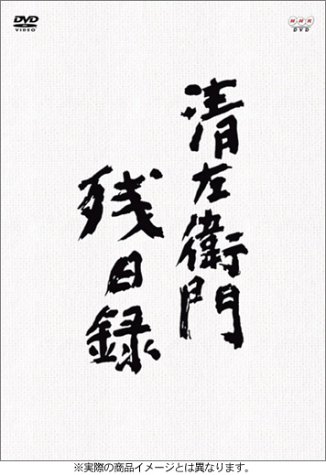 DVD
VIDEO
NHK
DVD
清左衛門
残日録
※実際の商品イメージとは異なります。